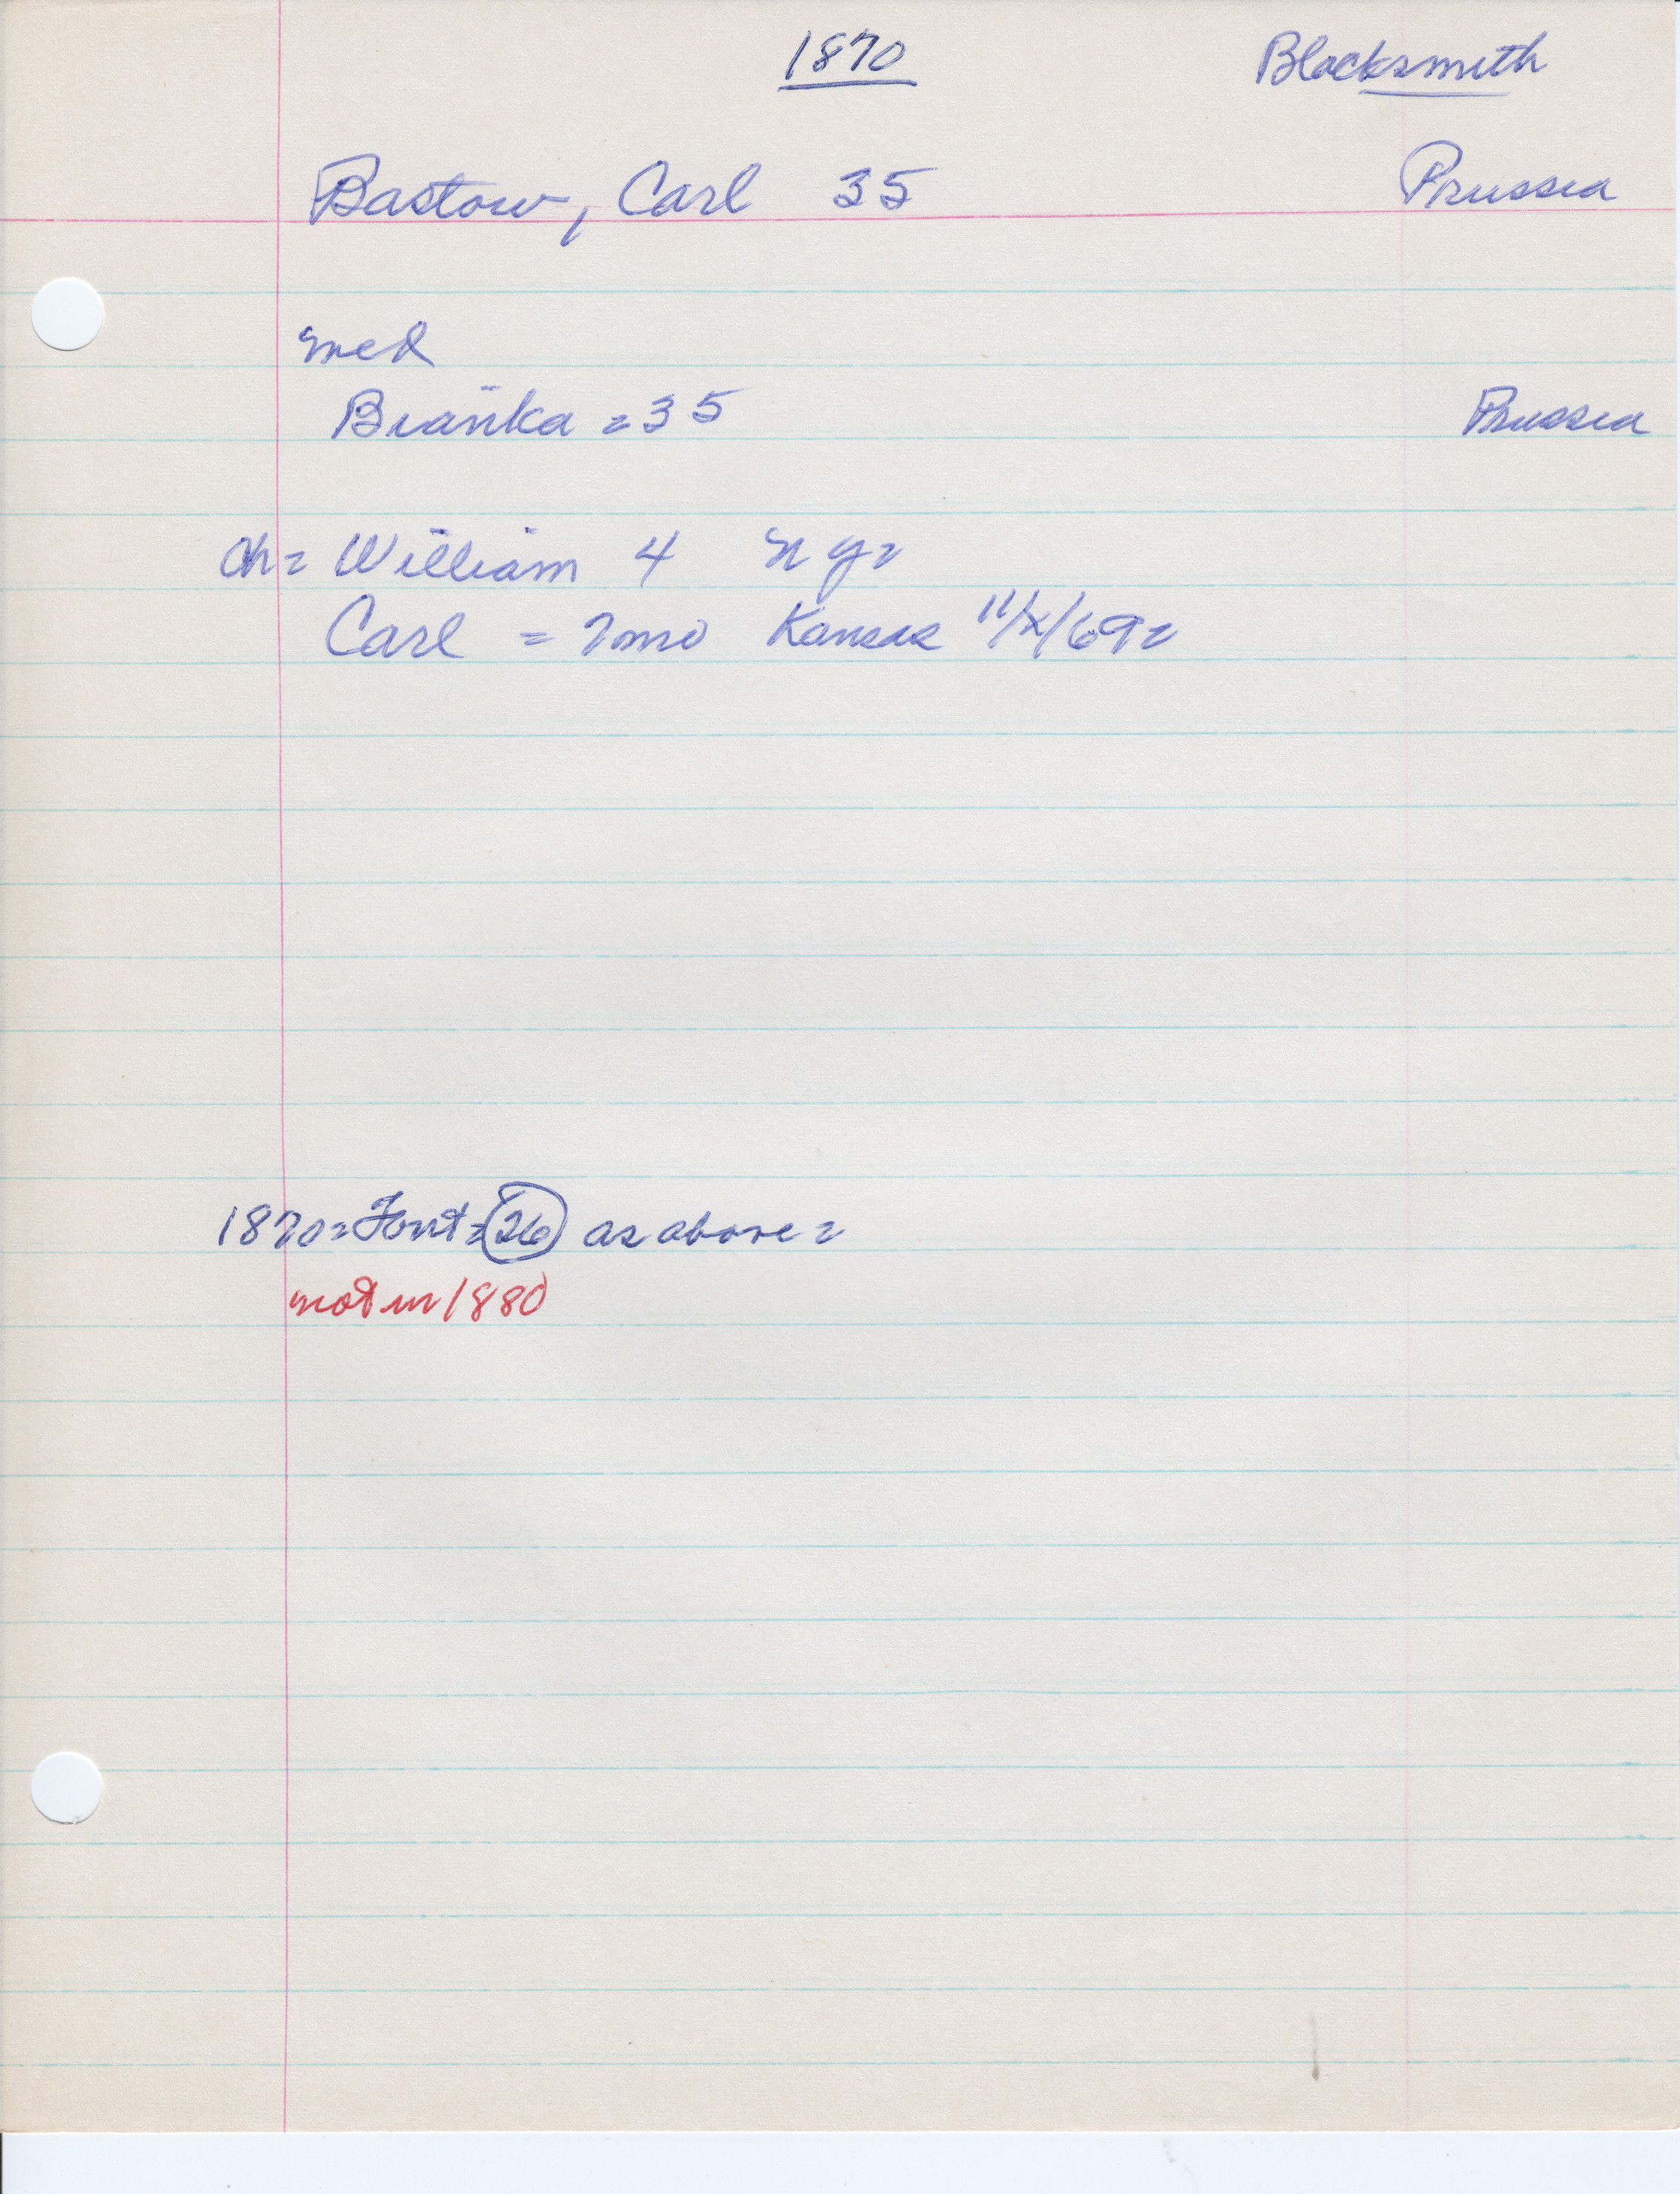 1870 Blacksmith
Bastow, Carl 35 Prussia
med
Bianka = 35 Prussia
ch = William 4 NY =
Carl = 7mo Kansas 11/x/69 =
1870 = Font = 26 as above =
not in 1880